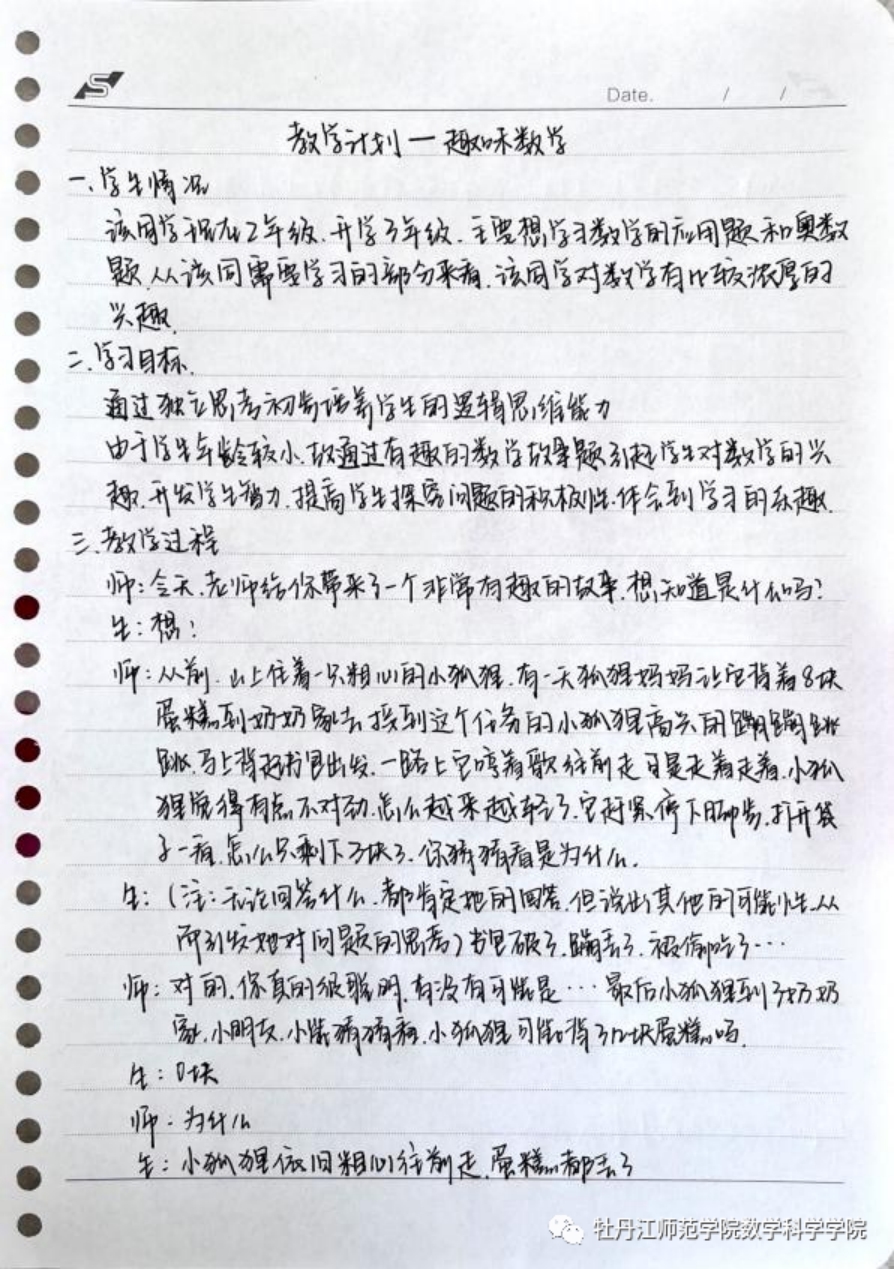 Date. / /
教学计划一趣味数学
一、学生情况
该同学现在2年级、开学3年级、主要想学习数学的应用题和奥数
题,从该同需要学习的部分来看,该同学对数学有比较浓厚的
兴趣.
二、学习目标
通过独立思考初步培养学生的逻辑思维能力
由于学生年龄较小,故通过有趣的数学故事题引起学生对数学的兴
趣,开发学生智力,提高学生探究问题的积极性,体会到学习的乐趣.
三、教学过程
师:今天,老师给你带来了一个非常有趣的故事,想知道是什么吗?
生:想!
师:从前,山上住着一只粗心的小狐狸,有一天狐狸妈妈让它背着8块
蛋糕到奶奶家去,接到这个任务的小狐狸高兴的蹦蹦跳
跳,马上背起书包出发,一路上它哼着歌往前走,可是走着走着,小狐
狸觉得有点不对劲,怎么越来越轻了,它赶紧停下脚步,打开袋
子一看,怎么只剩下3块了,你猜猜看是为什么.
生:(注:无论回答什么,都肯定她的回答,但说出其他的可能性,从
而引发她对问题的思考)书包破了,蹦丢了,被偷吃了…
师:对的,你真的很聪明,有没有可能是…最后小狐狸到了奶奶
家,小朋友,小能猜猜看,小狐狸可能背了几块蛋糕吗.
生:0块
师:为什么
生:小狐狸依旧粗心往前走,蛋糕都丢了
牡丹江师范学院数学科学学院